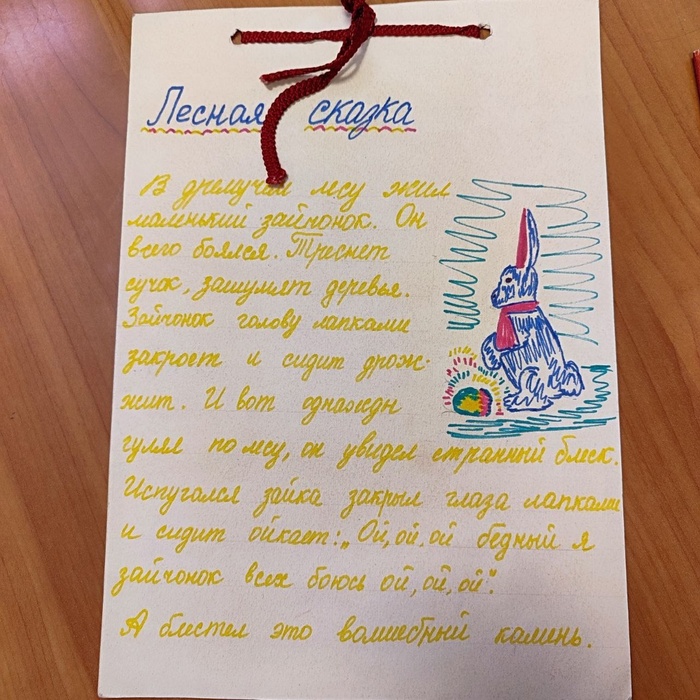 Лесная сказка
В дремучем лесу жил
маленький зайчонок. Он
всего боялся. Треснет
сучок, зашумят деревья.
Зайчонок голову лапками
закроет и сидит дрож-
жит. И вот однажды
гуляя по лесу, он увидел странный блеск.
Испугался зайка закрыл глаза лапками
и сидит ойкает: „Ой, ой, ой бедный я
зайчонок всех боюсь ой, ой, ой".
А блестел это волшебный камень.